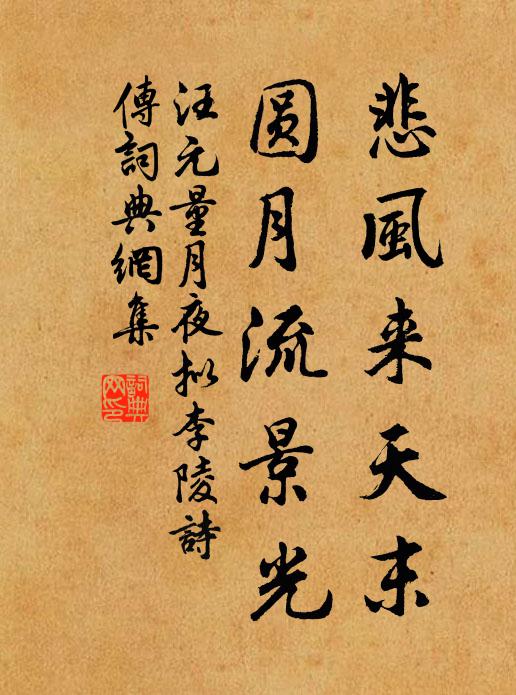 悲風来天末
圆月流景光
汪元量月夜拟李陵詩
傳詞典網集
詞典
网印